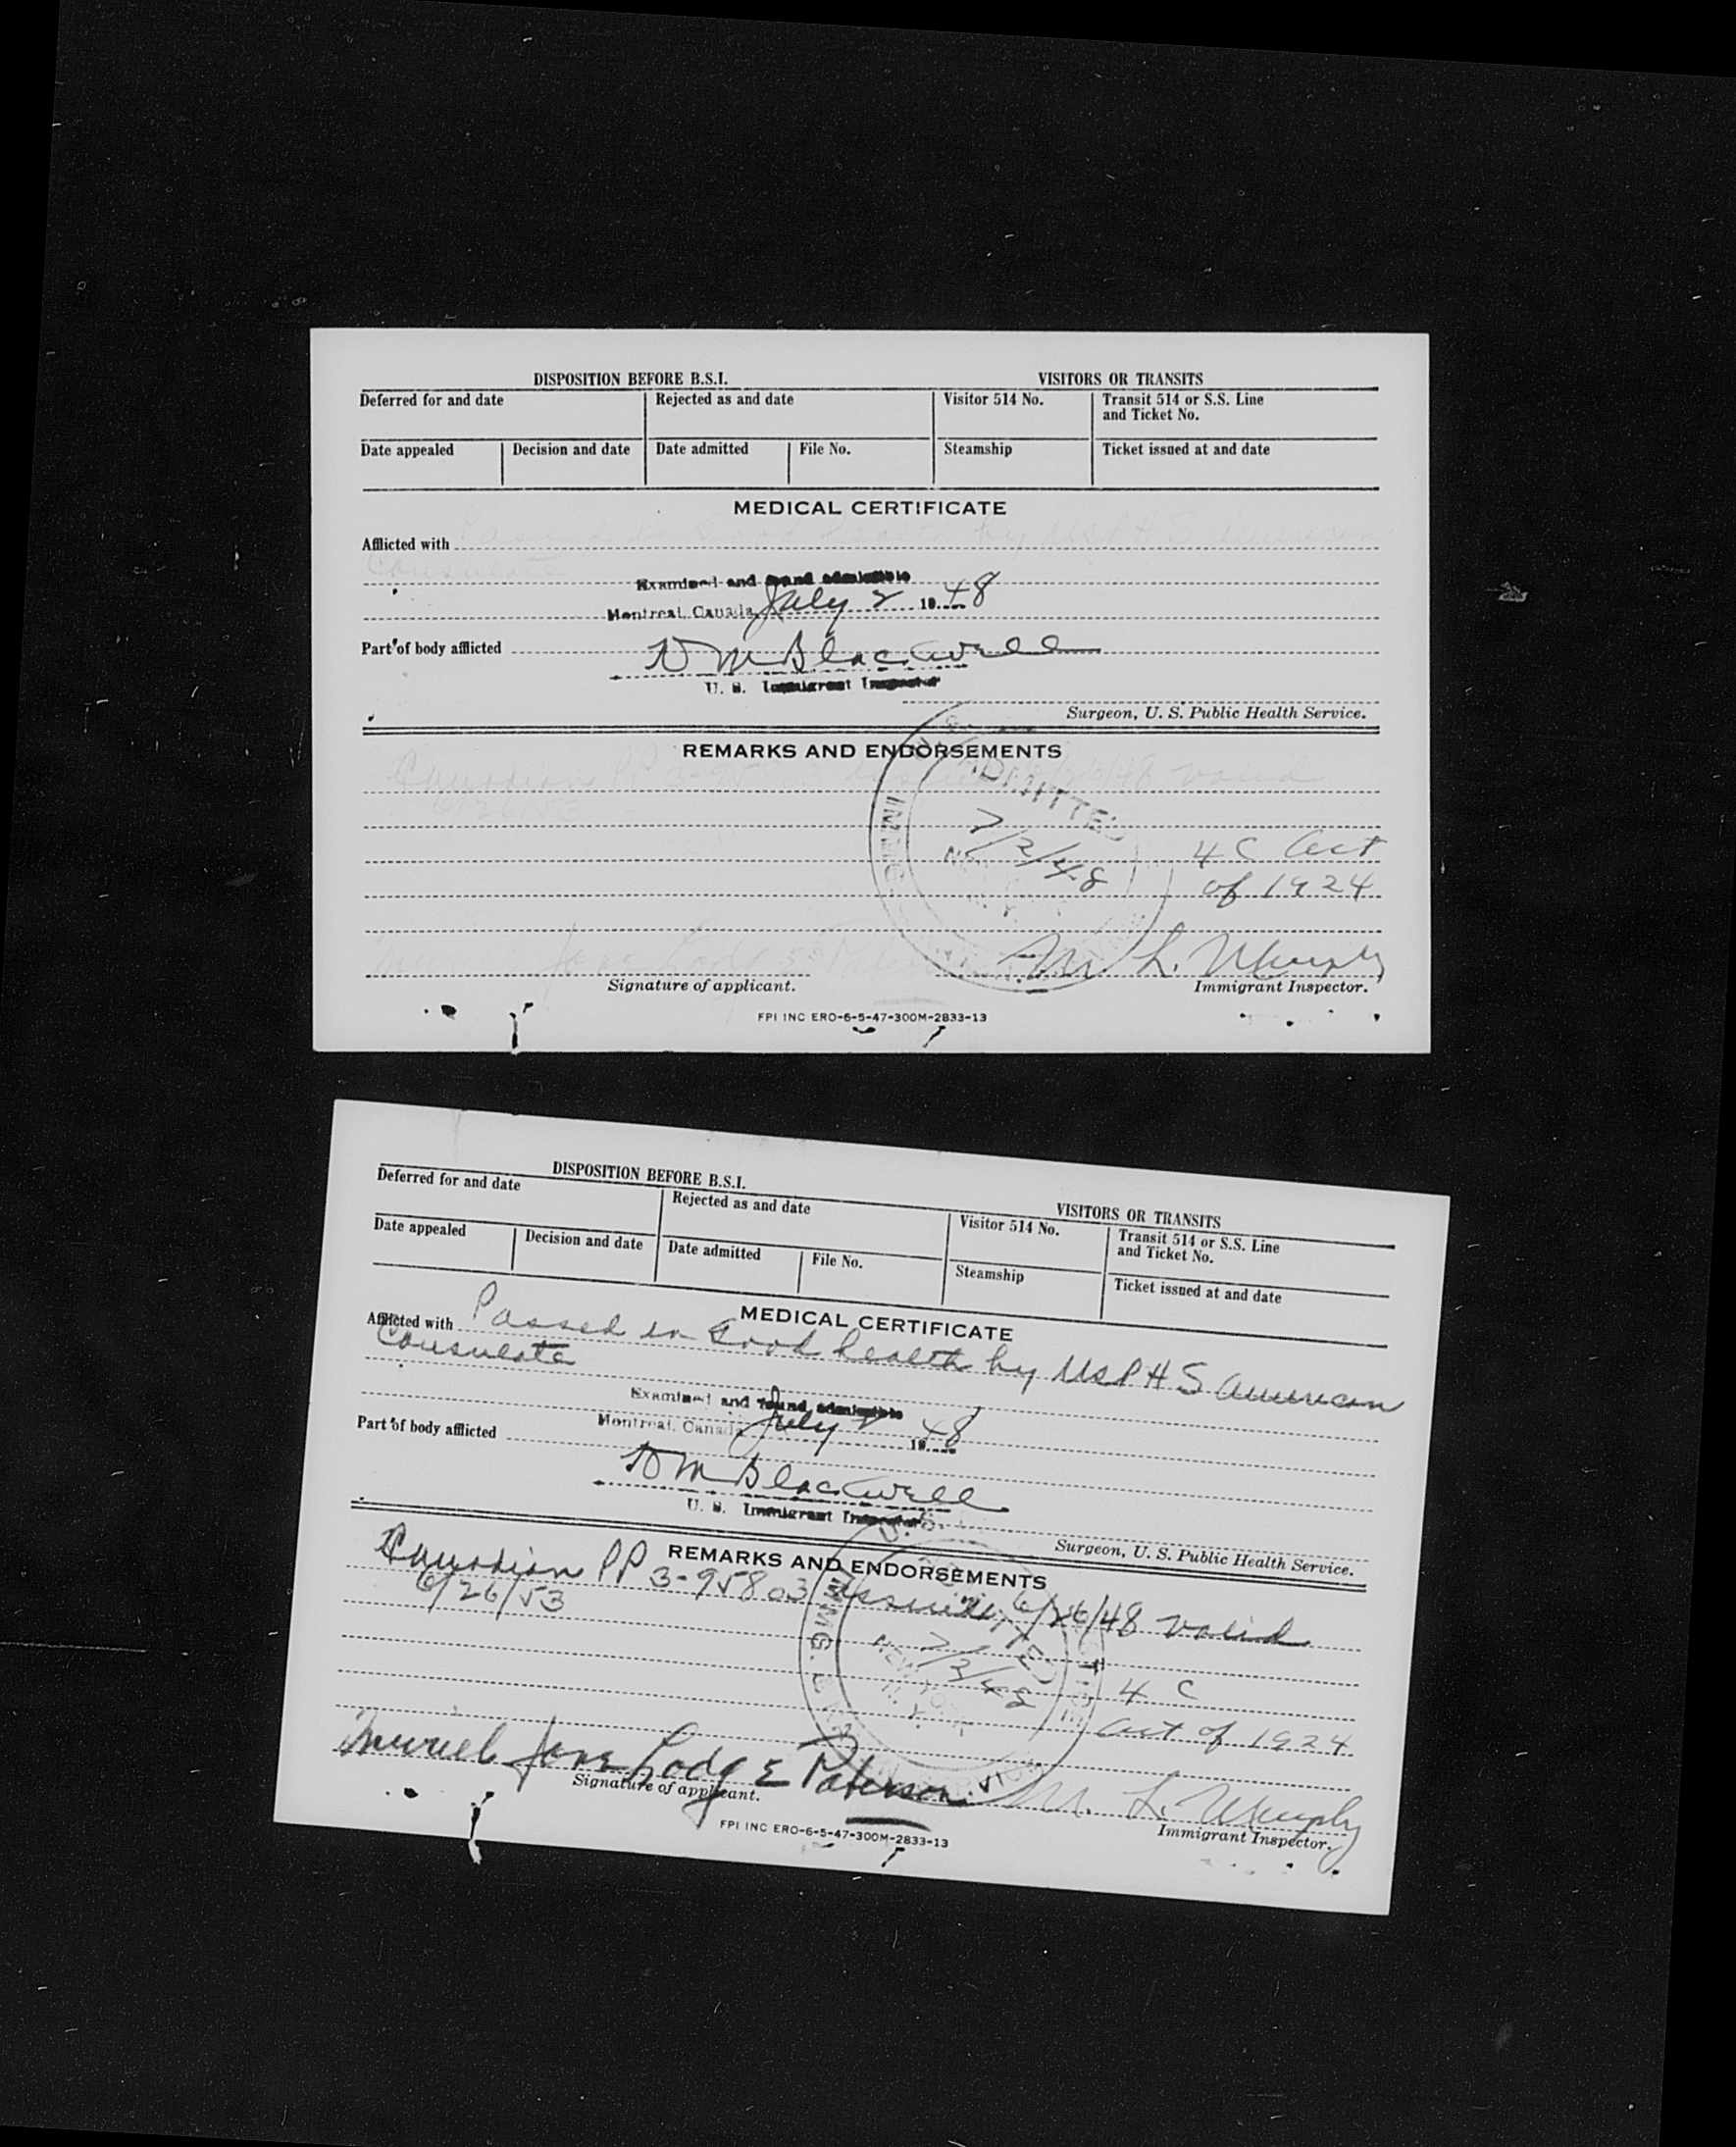 DISPOSITION BEFORE B.S.I. VISITORS OR TRANSITS
Deferred for and date Rejected as and date Visitor 514 No. Transit 514 or S.S. Line
and Ticket No.
Date appealed Decision and date Date admitted File No. Steamship Ticket issued at and date
MEDICAL CERTIFICATE
Afflicted with
Examined and found admissible
Montreal, Canada July 2 1948
Part of body afflicted
D M Blackwell
U. S. Immigrant Inspector
Surgeon, U. S. Public Health Service.
REMARKS AND ENDORSEMENTS
ADMITTED
7/2/48
4 C Act
of 1924
M. L. Murphy
Signature of applicant. Immigrant Inspector.
FPI INC ERO-6-5-47-300M-2833-13
DISPOSITION BEFORE B.S.I. VISITORS OR TRANSITS
Deferred for and date Rejected as and date Visitor 514 No. Transit 514 or S.S. Line
and Ticket No.
Date appealed Decision and date Date admitted File No. Steamship Ticket issued at and date
MEDICAL CERTIFICATE
Afflicted with Passed in Good health by USPHS American
Consulate
Examined and found admissible
Montreal, Canada July 2 1948
Part of body afflicted
D M Blackwell
U. S. Immigrant Inspector
Surgeon, U. S. Public Health Service.
REMARKS AND ENDORSEMENTS
Canadian PP 3-95803 issued 6/26/48 valid
6/26/53
7/2/48
NEW YORK
N. Y.
4 C
Act of 1924
Muriel Jane Lodge Paterson M. L. Murphy
Signature of applicant. Immigrant Inspector.
FPI INC ERO-6-5-47-300M-2833-13